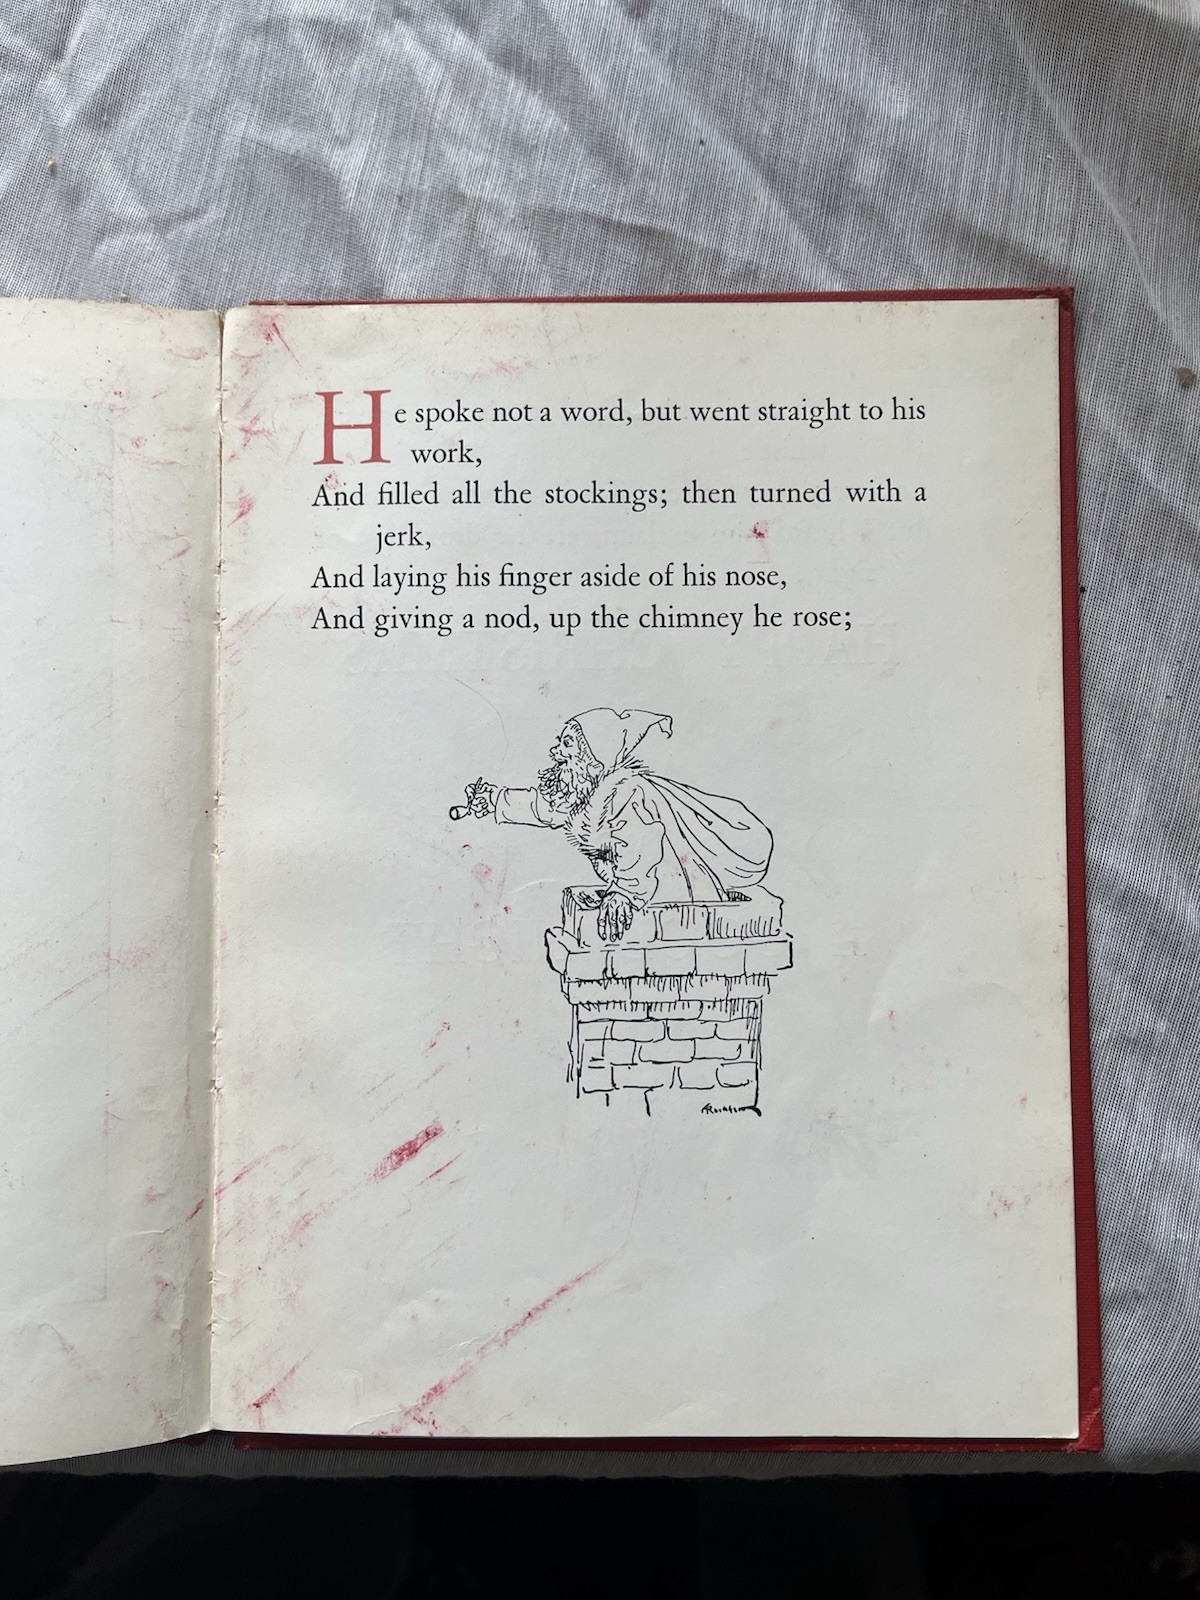 He spoke not a word, but went straight to his
work,
And filled all the stockings; then turned with a
jerk,
And laying his finger aside of his nose,
And giving a nod, up the chimney he rose;